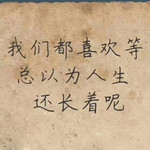 我们都喜欢等
总以为人生
还长着呢